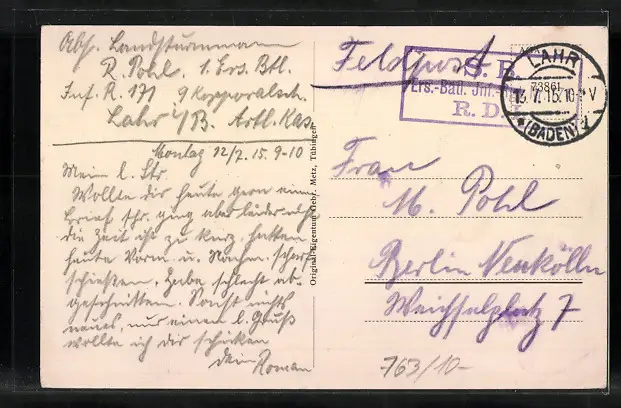 Abs. Landsturmmann
R. Pohl, 1. Ers. Btl.
Inf. R. 171 9 Korporalsch.
Lahr i/B. Artl. Kas.
Montag 12/7. 15. 9-10
Mein l.
Wollte dir heute gern einen
Brief schr. ging aber leider nicht
die Zeit ist zu kurz, hatten
heute Vorm. u. Nachm. scharf
schießen, habe schlecht ab-
geschnitten. Sonst nichts
neues, nur einen l. Gruß
wollte ich dir schicken
dein Roman
Original-Eigentum Gebr. Metz, Tübingen
Feldpost
S. B.
Ers.-Batl. Inf.-
R. D.
LAHR
13.7.15.10- V
* (BADEN)
Frau
M. Pohl
Berlin Neukölln
Weichselplatz 7
763/10-